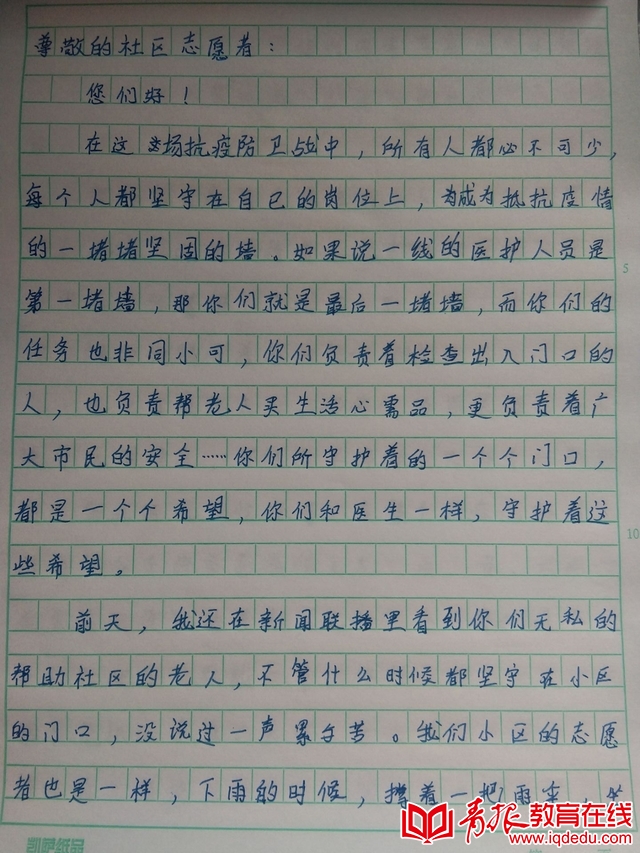 尊敬的社区志愿者：
您们好！
在这场抗疫防卫战中，所有人都必不可少，
每个人都坚守在自己的岗位上，为成为抵抗疫情
的一堵堵坚固的墙。如果说一线的医护人员是
第一堵墙，那你们就是最后一堵墙，而你们的
任务也非同小可，你们负责着检查出入门口的
人，也负责帮老人买生活心需品，更负责着广
大市民的安全……你们所守护着的一个个门口，
都是一个个希望，你们和医生一样，守护着这
些希望。
前天，我还在新闻联播里看到你们无私的
帮助社区的老人，不管什么时候都坚守在小区
的门口，没说过一声累与苦。我们小区的志愿
者也是一样，下雨的时候，撑着一把雨伞，
5
10
青报教育在线
www.iqdedu.com